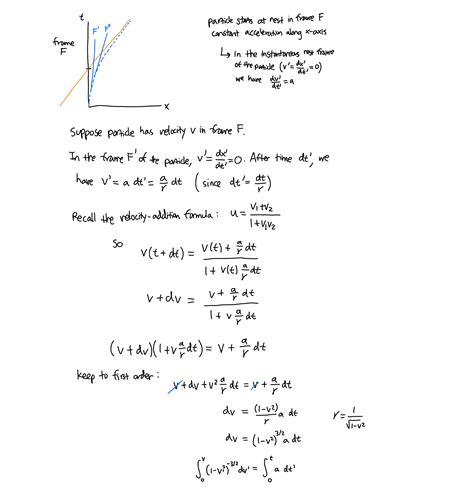 t
F' F"
frame
F
x
particle starts at rest in frame F
constant acceleration along x-axis
↳ In the instantaneous rest frame
of the particle (v' = dx'/dt' = 0)
we have dv'/dt' = a
Suppose particle has velocity v in frame F.
In the frame F' of the particle, v' = dx'/dt' = 0. After time dt', we
have v' = a dt' = a/γ dt (since dt' = dt/γ)
Recall the velocity-addition formula: u = (v₁+v₂)/(1+v₁v₂)
So
v(t+dt) = (v(t) + a/γ dt)/(1 + v(t) a/γ dt)
v+dv = (v + a/γ dt)/(1 + v a/γ dt)
(v+dv)(1+v a/γ dt) = v + a/γ dt
keep to first order:
v + dv + v² a/γ dt = v + a/γ dt
dv = (1-v²)/γ a dt
γ = 1/√(1-v²)
dv = (1-v²)^(3/2) a dt
∫₀^v (1-v'²)^(-3/2) dv' = ∫₀^t a dt'